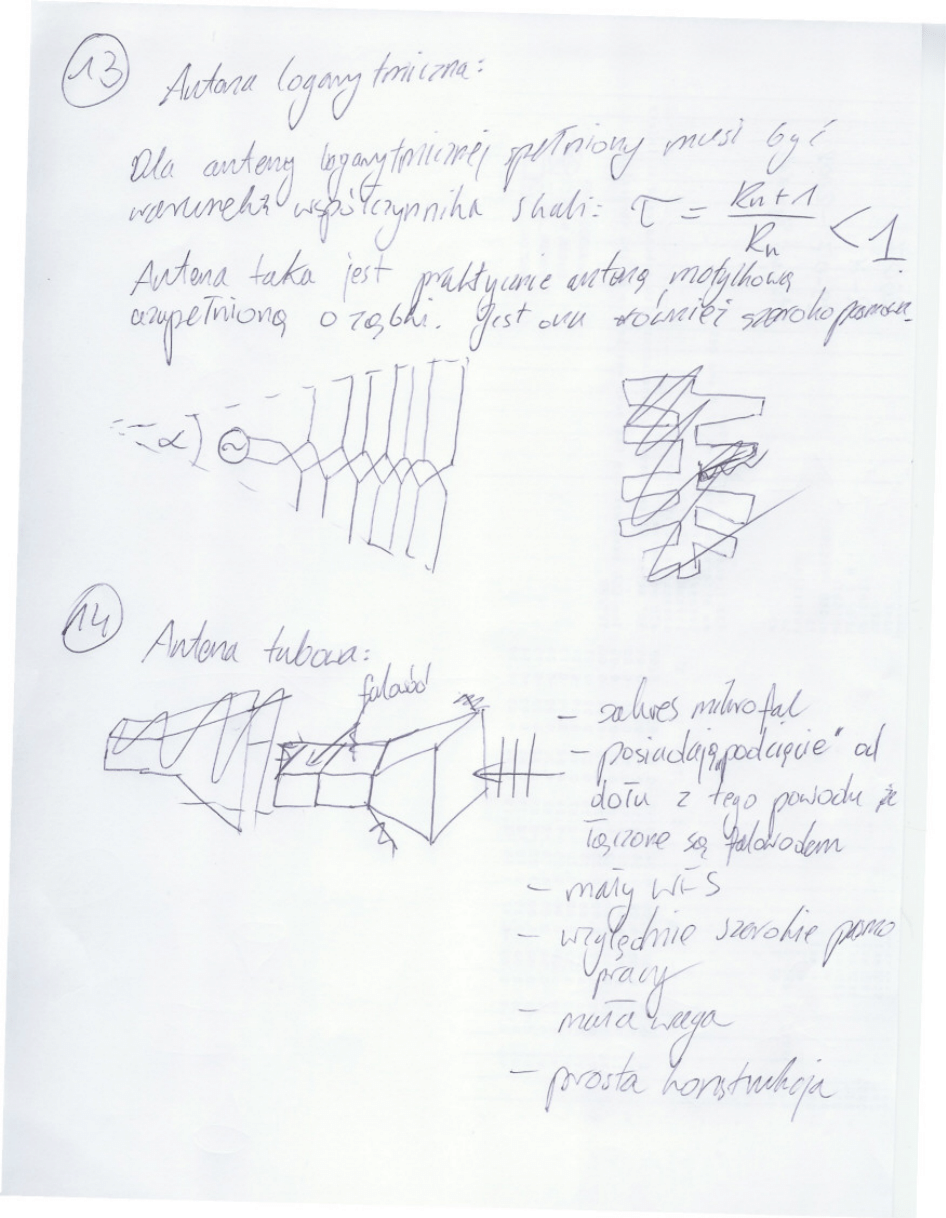 13
Antena logarytmiczna:
Dla anteny logarytmicznej spełniony musi być
warunek współczynnika skali: τ = Rn+1 / Rn < 1
Antena taka jest praktycznie anteną motylkową
uzupełnioną o ząbki. Jest ona również szerokopasmowa.
α
~
14
Antena tubowa:
falowód
– zakres mikrofal
– posiadają „podcięcie" od
dołu z tego powodu że
łączone są falowodem
– mały WFS
– względnie szerokie pasmo
pracy
– mała waga
– prosta konstrukcja